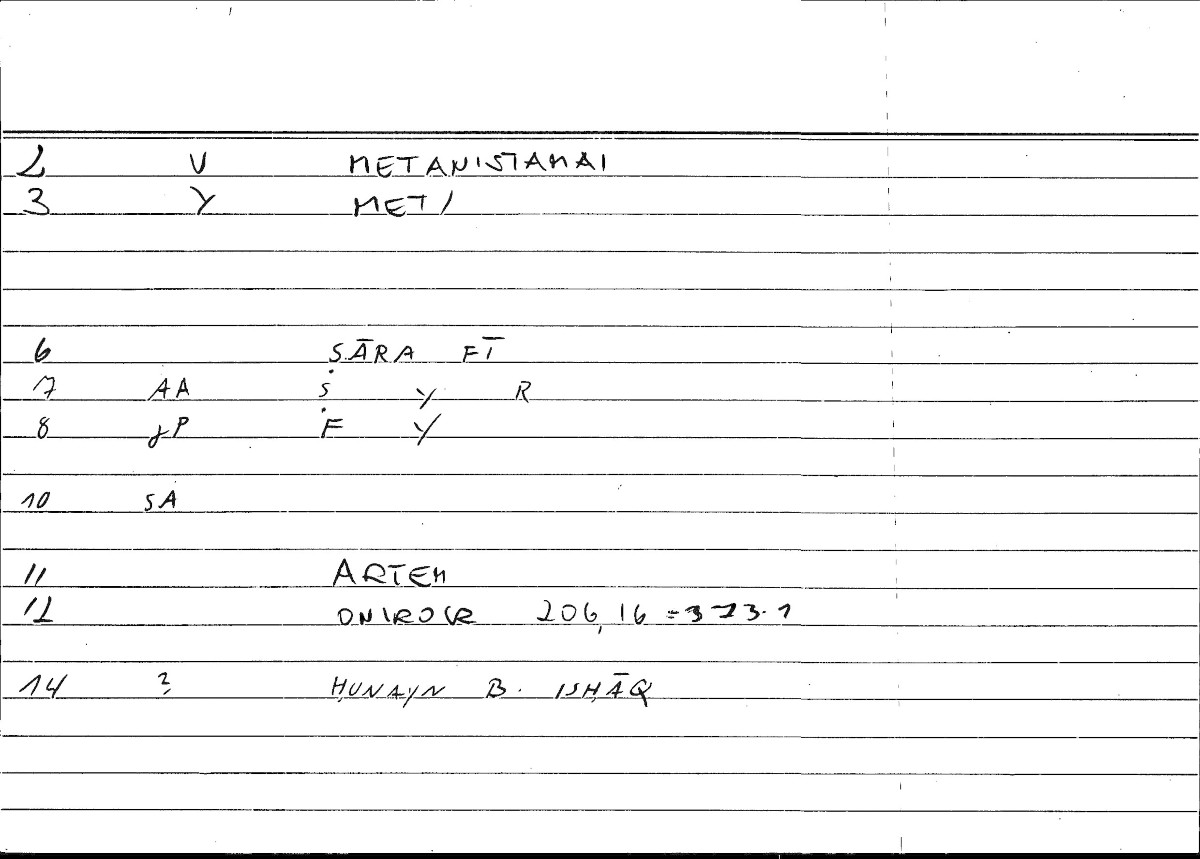 2 V METANISTAMAI
3 Y MET/
6 ṢĀRA FĪ
7 AA Ṣ Y R
8 gP F Y
10 SA
11 ARTEM
12 ONIROCR 206,16 = 373.1
14 ? ḤUNAYN B. ISḤĀQ